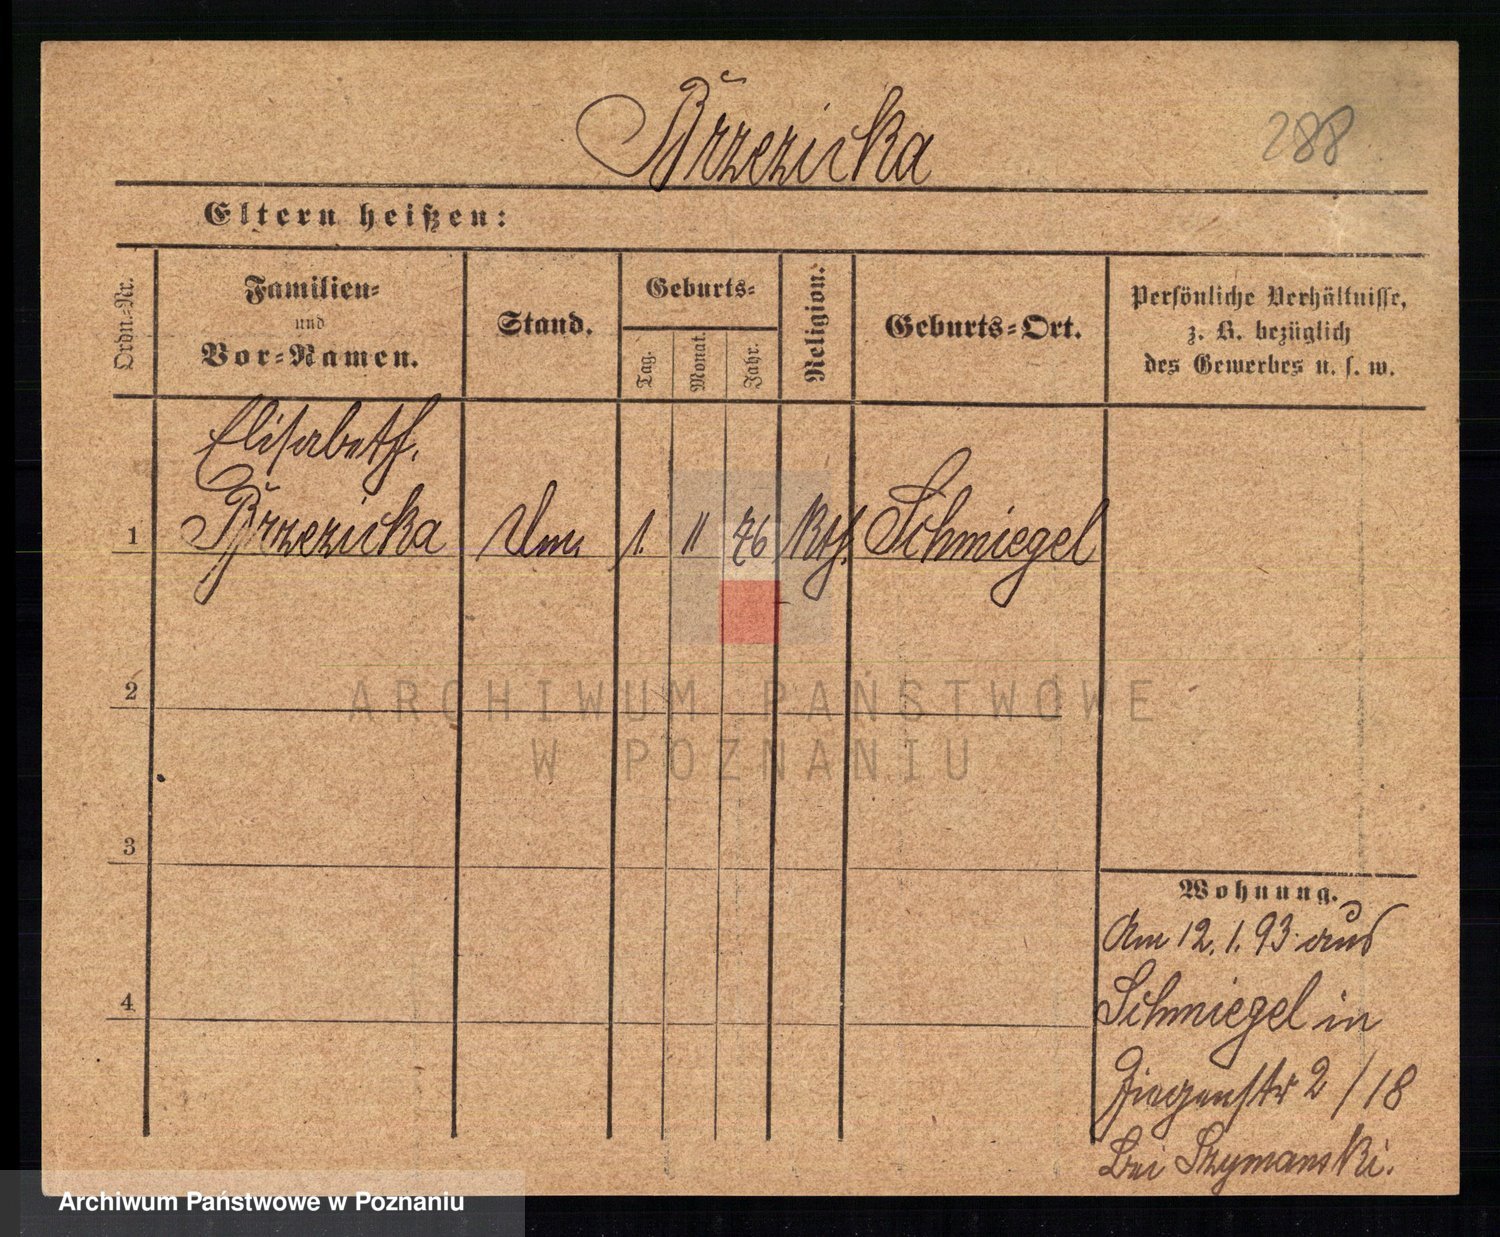 Brzezicka
288
Eltern heißen:
Ordn.-Nr.
Familien-
und
Vor-Namen.
Stand.
Geburts-
Tag.
Monat.
Jahr.
Religion.
Geburts-Ort.
Persönliche Verhältnisse,
z. B. bezüglich
des Gewerbes u. s. w.
Elisabeth.
1 Brzezicka 1. 11 76 Kth. Schmiegel
2
ARCHIWUM PAŃSTWOWE
W POZNANIU
3
Wohnung.
Am 12.1.93 aus
4 Schmiegel in
Ziegenstr 2/18
bei Szymanski.
Archiwum Państwowe w Poznaniu